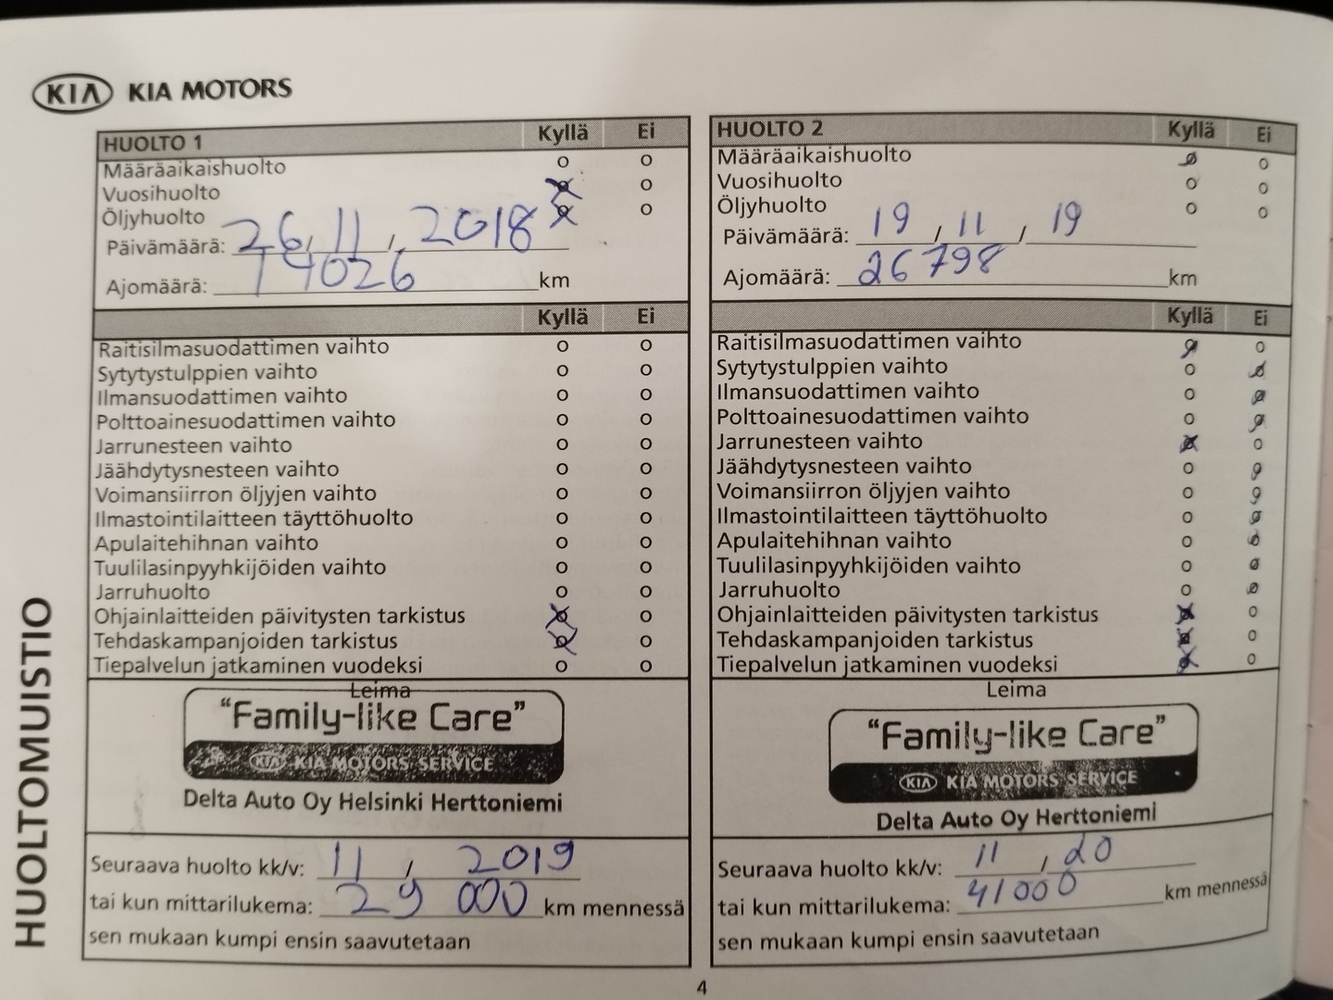 KIA KIA MOTORS
HUOLTO 1 Kyllä Ei
Määräaikaishuolto o o
Vuosihuolto o o
Öljyhuolto o o
Päivämäärä: 26, 11, 2018
Ajomäärä: 14026 km
Kyllä Ei
Raitisilmasuodattimen vaihto o o
Sytytystulppien vaihto o o
Ilmansuodattimen vaihto o o
Polttoainesuodattimen vaihto o o
Jarrunesteen vaihto o o
Jäähdytysnesteen vaihto o o
Voimansiirron öljyjen vaihto o o
Ilmastointilaitteen täyttöhuolto o o
Apulaitehihnan vaihto o o
Tuulilasinpyyhkijöiden vaihto o o
Jarruhuolto o o
Ohjainlaitteiden päivitysten tarkistus o o
Tehdaskampanjoiden tarkistus o o
Tiepalvelun jatkaminen vuodeksi o o
Leima
"Family-like Care"
KIA KIA MOTORS SERVICE
Delta Auto Oy Helsinki Herttoniemi
Seuraava huolto kk/v: 11 / 2019
tai kun mittarilukema: 29 000 km mennessä
sen mukaan kumpi ensin saavutetaan
HUOLTO 2 Kyllä Ei
Määräaikaishuolto o o
Vuosihuolto o o
Öljyhuolto o o
Päivämäärä: 19, 11, 19
Ajomäärä: 26798 km
Kyllä Ei
Raitisilmasuodattimen vaihto o o
Sytytystulppien vaihto o o
Ilmansuodattimen vaihto o o
Polttoainesuodattimen vaihto o o
Jarrunesteen vaihto o o
Jäähdytysnesteen vaihto o o
Voimansiirron öljyjen vaihto o o
Ilmastointilaitteen täyttöhuolto o o
Apulaitehihnan vaihto o o
Tuulilasinpyyhkijöiden vaihto o o
Jarruhuolto o o
Ohjainlaitteiden päivitysten tarkistus o o
Tehdaskampanjoiden tarkistus o o
Tiepalvelun jatkaminen vuodeksi o o
Leima
"Family-like Care"
KIA KIA MOTORS SERVICE
Delta Auto Oy Herttoniemi
Seuraava huolto kk/v: 11 / 20
tai kun mittarilukema: 41000 km mennessä
sen mukaan kumpi ensin saavutetaan
HUOLTOMUISTIO
4